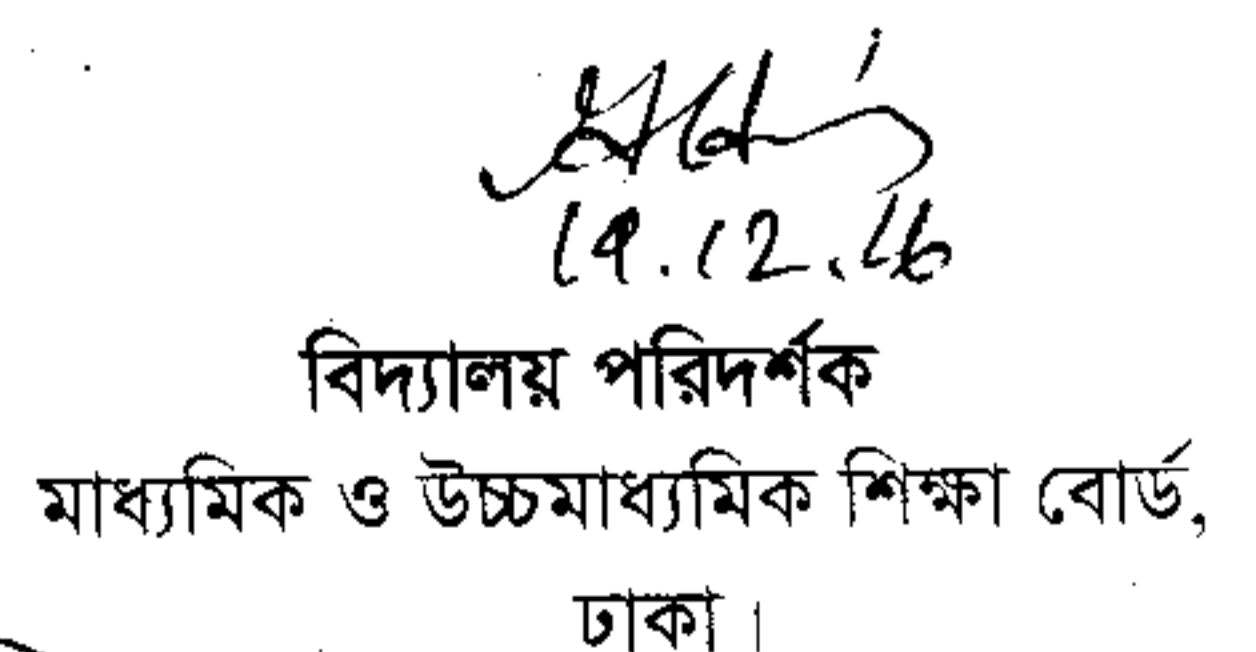 বিদ্যালয় পরিদর্শক
মাধ্যমিক ও উচ্চমাধ্যমিক শিক্ষা বোর্ড,
ঢাকা।